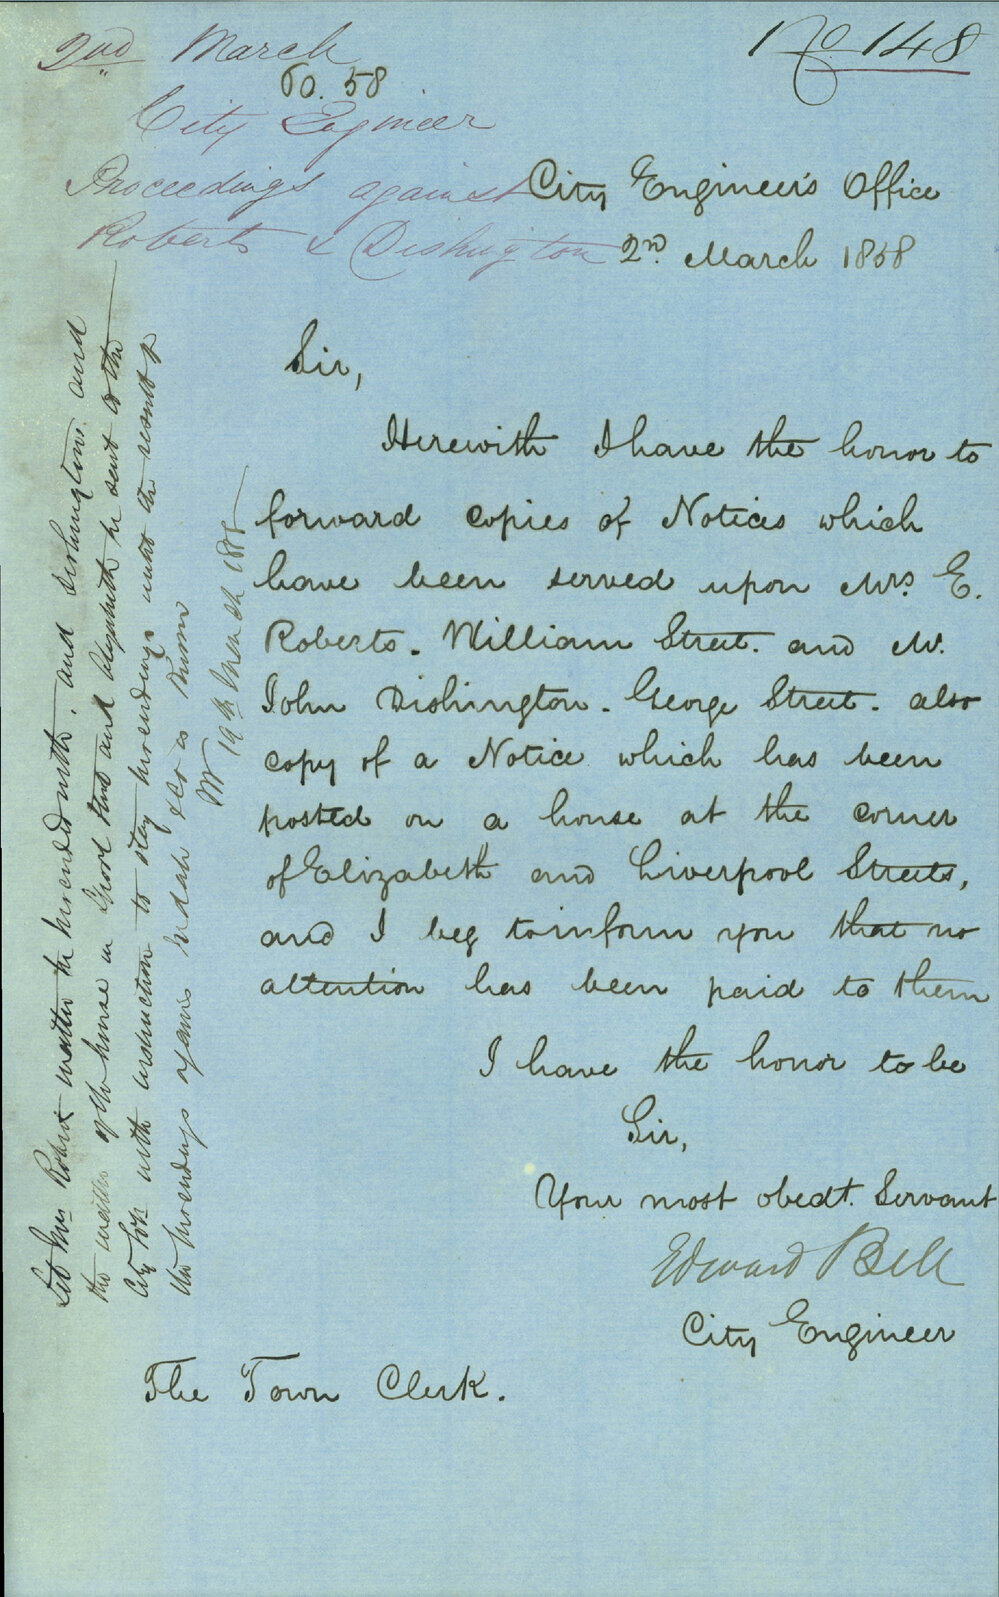 2nd March
No. 148
60. 58
City Engineer
Proceedings against
Roberts & Dishington
City Engineer's Office
2nd March 1858
Sir,
Herewith I have the honor to
forward copies of Notices which
have been served upon Mrs. E.
Roberts. William Street. and Mr.
John Dishington. George Street. also
copy of a Notice which has been
posted on a house at the corner
of Elizabeth and Liverpool Streets,
and I beg to inform you that no
attention has been paid to them
I have the honor to be
Sir,
Your most obedt. Servant
Edward Bell
City Engineer
The Town Clerk.
Let Mrs Roberts matter be proceeded with, and Dishingtons and
the matter of the house in and Elizabeth be sent to the
City with instruction to stay proceedings until the result of
the proceedings against is known
19th March 1858